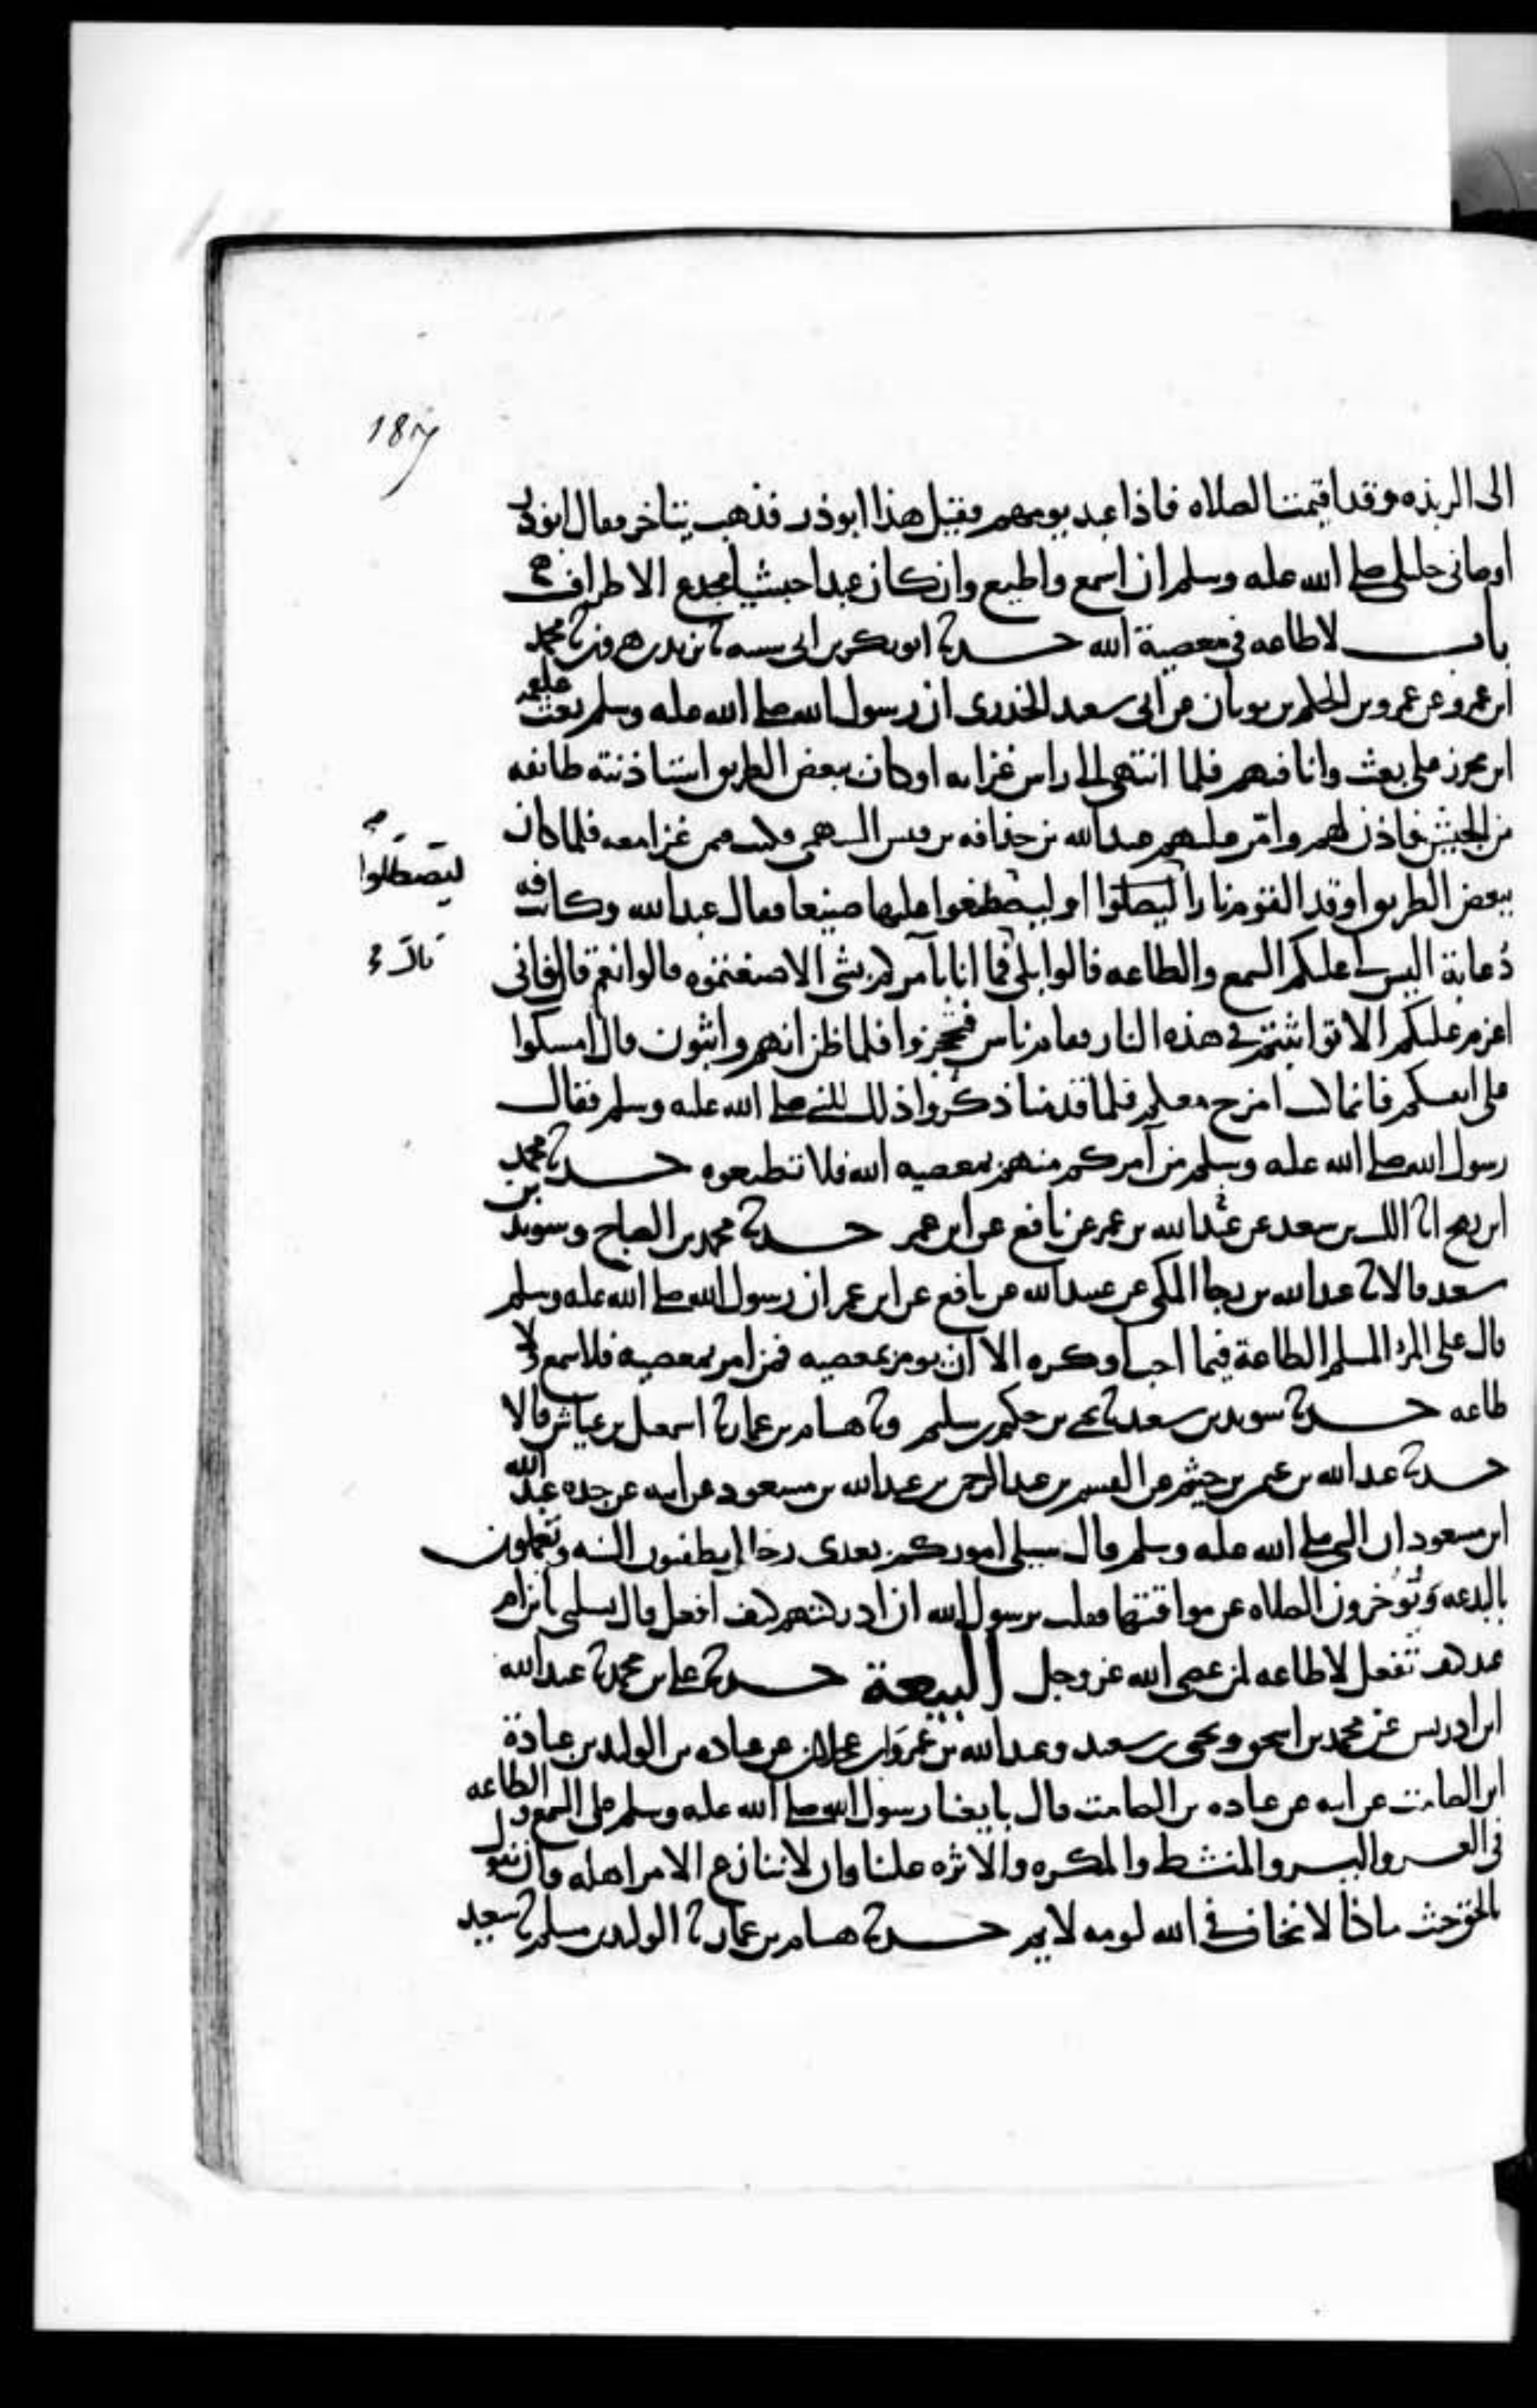 187
الى الربذه وقد اقيمت الصلاه فاذا عبد يومهم فقيل هذا ابو ذر فذهب يتاخر فقال ابو ذر
اوصانى خليلى صلى الله عليه وسلم ان اسمع واطيع وان كان عبدا حبشيا مجدع الاطراف
باب لا طاعه في معصية الله حدثنا ابو بكر بن ابى شيبه ثنا يزيد بن هرون ثنا محمد
ابن عمرو عن عمرو بن الحكم بن ثوبان عن ابى سعيد الخدرى ان رسول الله صلى الله عليه وسلم بعث علقمه
ابن مجزز على بعث وانا فيهم فلما انتهى الى راس غزاته او كان ببعض الطريق استاذنته طائفه
من الجيش فاذن لهم وامّر عليهم عبد الله بن حذافه بن قيس السهمى وكنت فيمن غزا معه فلما كان
ببعض الطريق اوقد القوم نارا ليصطلوا او ليصطنعوا عليها صنيعا فقال عبد الله وكانت فيه
ليصطلوا
دُعابة اليس لى عليكم السمع والطاعه قالوا بلى فما انا بآمركم بشى الا صنعتموه قالوا نعم قال فانى
اعزم عليكم الا تواثبتم في هذه النار فقام ناس فتحجزوا فلما ظن انهم واثبون قال امسكوا
على انفسكم فانما كنت امزح معكم فلما قدمنا ذكروا ذلك للنبى صلى الله عليه وسلم فقال
رسول الله صلى الله عليه وسلم من آمركم منهم بمعصيه الله فلا تطيعوه حدثنا محمد
ابن رمح انا الليث بن سعد عن عبيد الله بن عمر عن نافع عن ابن عمر حدثنا محمد بن الصباح وسويد بن
سعيد قالا ثنا عبد الله بن رجا المكى عن عبيد الله عن نافع عن ابن عمر ان رسول الله صلى الله عليه وسلم
قال على المرء المسلم الطاعة فيما احب او كره الا ان يومر بمعصيه فمن امر بمعصيه فلا سمع ولا
طاعه حدثنا سويد بن سعيد ثنا يحيى بن سليم وثنا هشام بن عمار ثنا اسمعيل بن عياش قالا
حدثنا عبد الله بن عثمن بن خيثم عن القسم بن عبد الرحمن بن عبد الله بن مسعود عن ابيه عن جده عبد الله
ابن مسعود ان النبى صلى الله عليه وسلم قال سيلى اموركم بعدى رجال يطفئون السنه ويعملون
بالبدعه ويُوخرون الصلاه عن مواقتتها فقلت يرسول الله ان ادركتهم كيف افعل قال تسلنى يابن ام
عبد كيف تفعل لا طاعه لمن عصى الله عز وجل البيعة حدثنا على بن محمد ثنا عبد الله
ابن ادريس عن محمد بن اسحق ويحيى بن سعيد وعبيد الله بن عمر وابن عجلان عن عباده بن الوليد بن عبادة
ابن الصامت عن ابيه عن عباده بن الصامت قال بايعنا رسول الله صلى الله عليه وسلم على السمع والطاعه
فى العسر واليسر والمنشط والمكره والاثره علينا وان لا ننازع الامر اهله وان نقول
بالحق حيث ما كنا لا نخاف في الله لومه لايم حدثنا هشام بن عمار ثنا الوليد بن مسلم ثنا سعيد